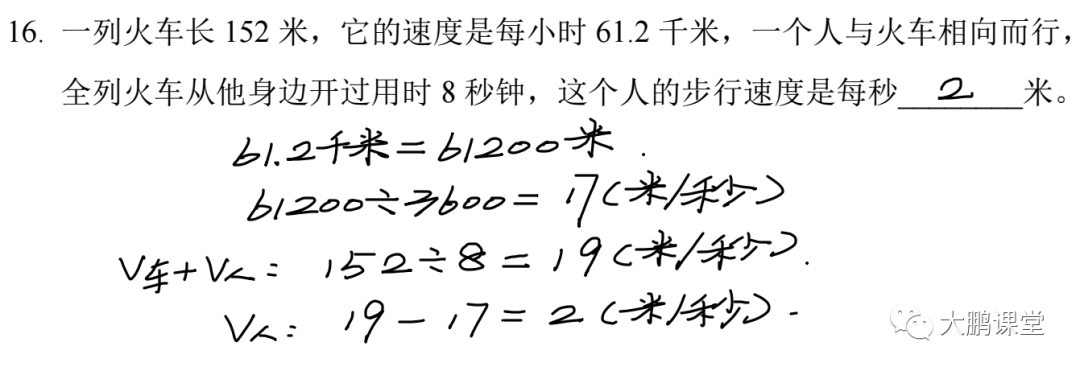 16. 一列火车长 152 米，它的速度是每小时 61.2 千米，一个人与火车相向而行，
全列火车从他身边开过用时 8 秒钟，这个人的步行速度是每秒 2 米。
61.2千米=61200米.
61200÷3600=17(米/秒)
V车+V人: 152÷8=19(米/秒).
V人: 19-17=2(米/秒).
大鹏课堂